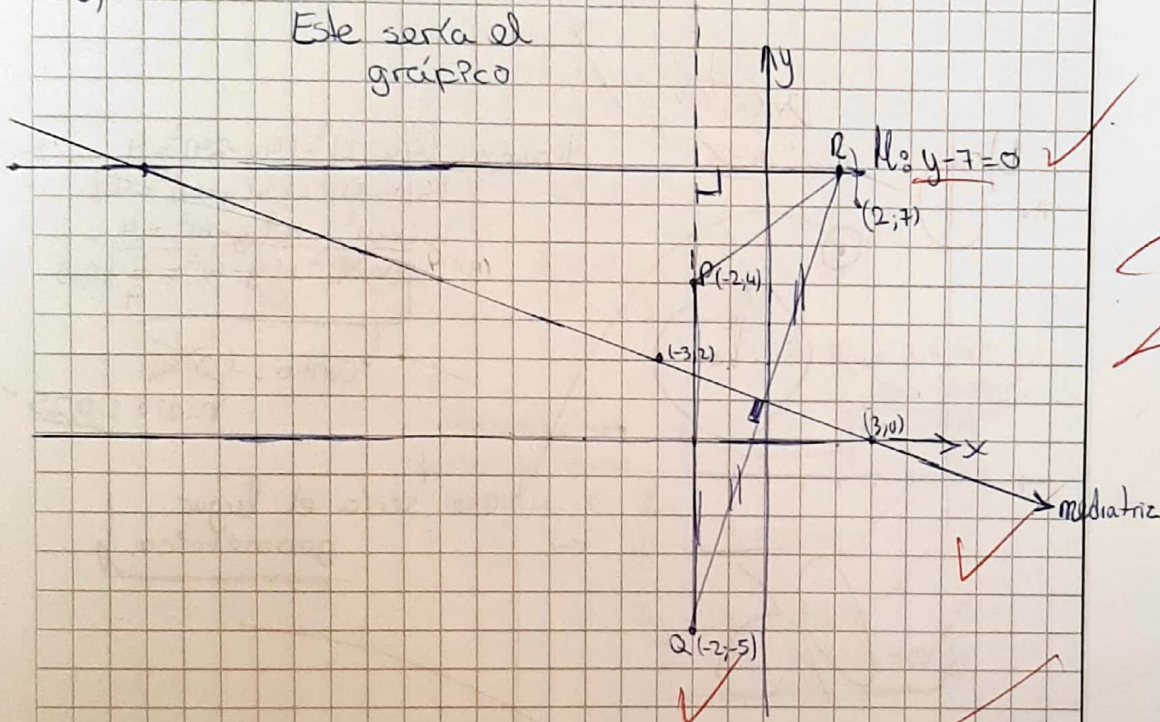 Este sería el
gráfico
y
R
H: y-7=0
(2;7)
P(-2;4)
(-3;2)
(3;0)
x
mediatriz
Q(-2;-5)